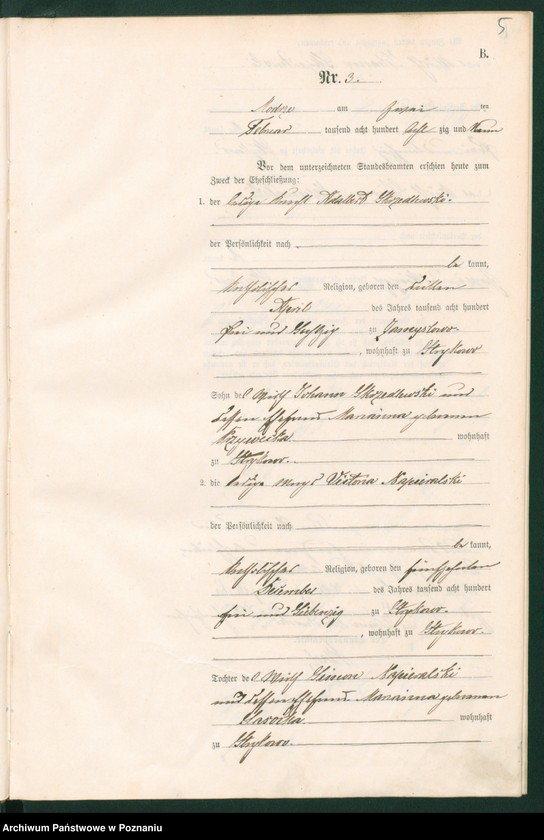 5
B.
Nr. 3.
Modrze am zwei ten
Februar tausend acht hundert acht zig und neun
Vor dem unterzeichneten Standesbeamten erschien heute zum
Zweck der Eheschließung:
1. der ledige Knecht Adalbert Skozedlewski.
der Persönlichkeit nach
be kannt,
katholischer Religion, geboren den dritten
April des Jahres tausend acht hundert
drei und sechzig zu
, wohnhaft zu Strykowo
Sohn des Wirth Johann Skozedlewski und
dessen Ehefrau Marianna geborenen
wohnhaft
zu Strykowo.
2. die ledige Magd Victoria Napieralski
der Persönlichkeit nach
be kannt,
katholischer Religion, geboren den fünfzehnten
Dezember des Jahres tausend acht hundert
drei und siebenzig zu Strykowo.
, wohnhaft zu Strykowo.
Tochter des Wirth Simon Napieralski
und dessen Ehefrau Marianna geborenen
wohnhaft
zu Strykowo.
Archiwum Państwowe w Poznaniu